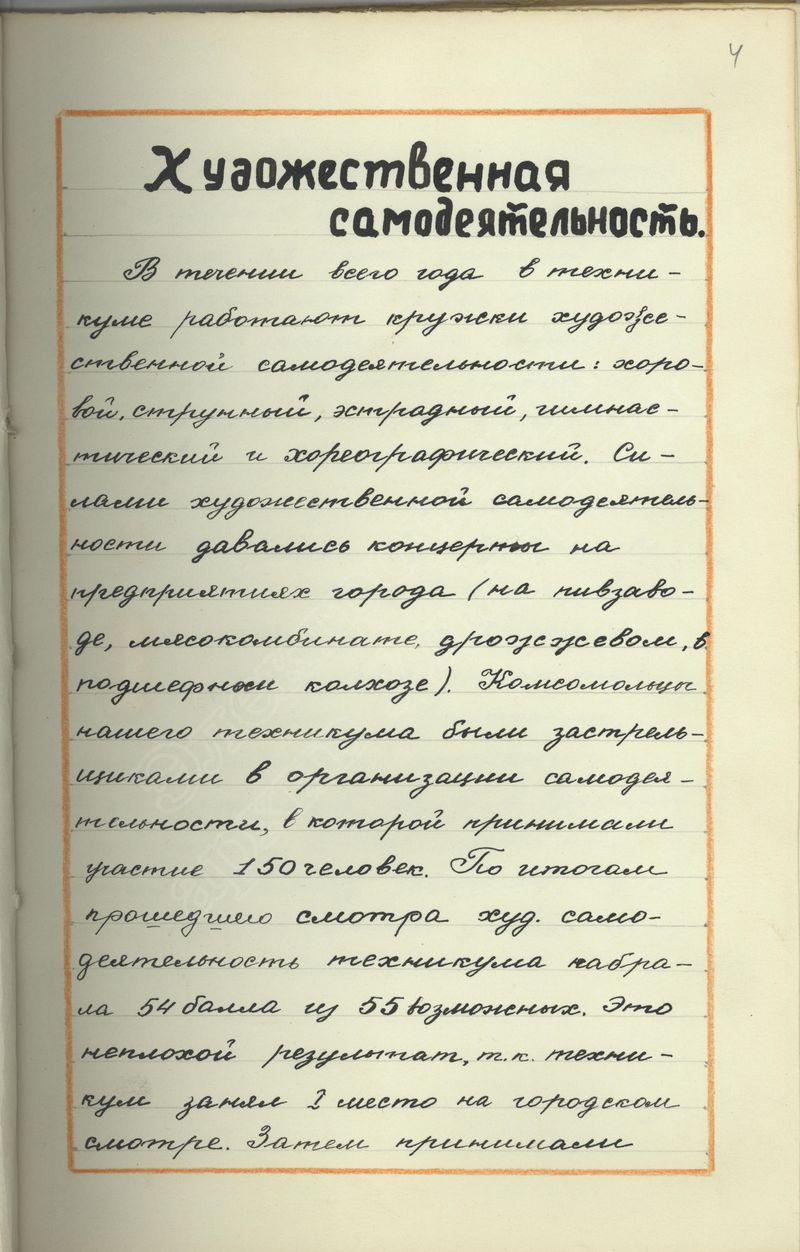 4
Художественная
самодеятельность.
В течении всего года в техни-
куме работают кружки художе-
ственной самодеятельности: хоро-
вой, струнный, эстрадный, гимнас-
тический и хореографический. Си-
лами художественной самодеятель-
ности давались концерты на
предприятиях города (на пивзаво-
де, мясокомбинате, дрожжевом, в
подшефном колхозе). Комсомольцы
нашего техникума были застрель-
щиками в организации самодея-
тельности, в которой принимали
участие 150 человек. По итогам
прошедшего смотра худ. само-
деятельность техникума набра-
ла 54 балла из 55 возможных. Это
неплохой результат, т.к. техни-
кум занял I место на городском
смотре. Затем принимали